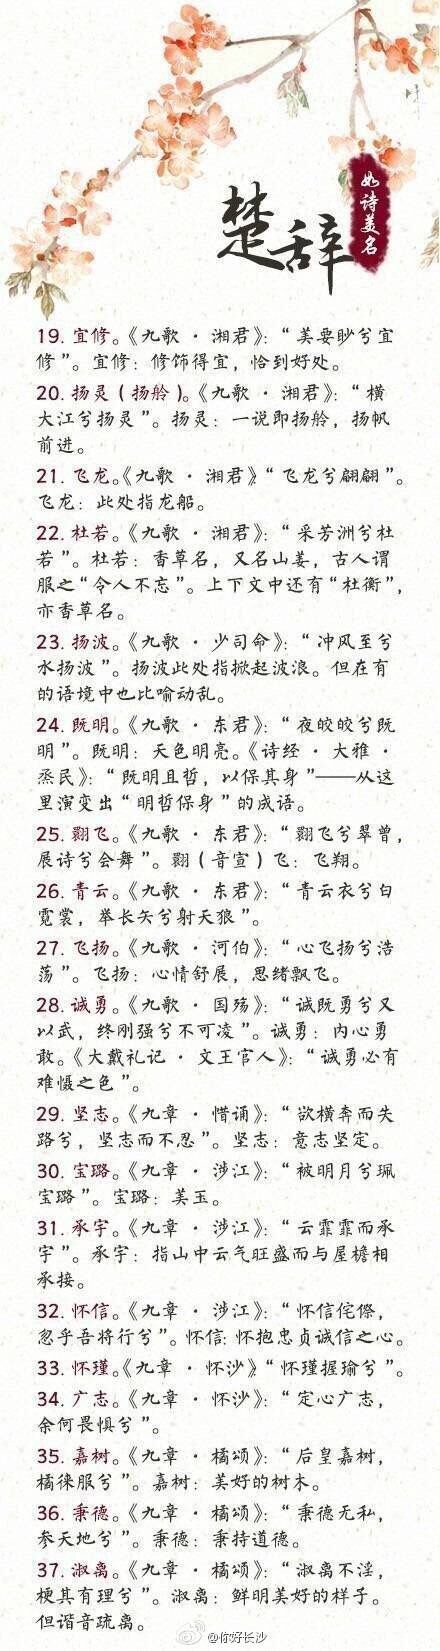 楚辞
如诗美名
19. 宜修。《九歌·湘君》：“美要眇兮宜
修”。宜修：修饰得宜，恰到好处。
20. 扬灵（扬舲）。《九歌·湘君》：“横
大江兮扬灵”。扬灵：一说即扬舲，扬帆
前进。
21. 飞龙。《九歌·湘君》“飞龙兮翩翩”。
飞龙：此处指龙船。
22. 杜若。《九歌·湘君》：“采芳洲兮杜
若”。杜若：香草名，又名山姜，古人谓
服之“令人不忘”。上下文中还有“杜衡”，
亦香草名。
23. 扬波。《九歌·少司命》：“冲风至兮
水扬波”。扬波此处指掀起波浪。但在有
的语境中也比喻动乱。
24. 既明。《九歌·东君》：“夜皎皎兮既
明”。既明：天色明亮。《诗经·大雅·
烝民》：“既明且哲，以保其身”——从这
里演变出“明哲保身”的成语。
25. 翾飞。《九歌·东君》：“翾飞兮翠曾，
展诗兮会舞”。翾（音宣）飞：飞翔。
26. 青云。《九歌·东君》：“青云衣兮白
霓裳，举长矢兮射天狼”。
27. 飞扬。《九歌·河伯》：“心飞扬兮浩
荡”。飞扬：心情舒展，思绪飘飞。
28. 诚勇。《九歌·国殇》：“诚既勇兮又
以武，终刚强兮不可凌”。诚勇：内心勇
敢。《大戴礼记·文王官人》：“诚勇必有
难慑之色”。
29. 坚志。《九章·惜诵》：“欲横奔而失
路兮，坚志而不忍”。坚志：意志坚定。
30. 宝璐。《九章·涉江》：“被明月兮珮
宝璐”。宝璐：美玉。
31. 承宇。《九章·涉江》：“云霏霏而承
宇”。承宇：指山中云气旺盛而与屋檐相
承接。
32. 怀信。《九章·涉江》：“怀信侘傺，
忽乎吾将行兮”。怀信：怀抱忠贞诚信之心。
33. 怀瑾。《九章·怀沙》“怀瑾握瑜兮”。
34. 广志。《九章·怀沙》：“定心广志，
余何畏惧兮”。
35. 嘉树。《九章·橘颂》：“后皇嘉树，
橘徕服兮”。嘉树：美好的树木。
36. 秉德。《九章·橘颂》：“秉德无私，
参天地兮”。秉德：秉持道德。
37. 淑离。《九章·橘颂》：“淑离不淫，
梗其有理兮”。淑离：鲜明美好的样子。
但谐音疏离。
@你好长沙